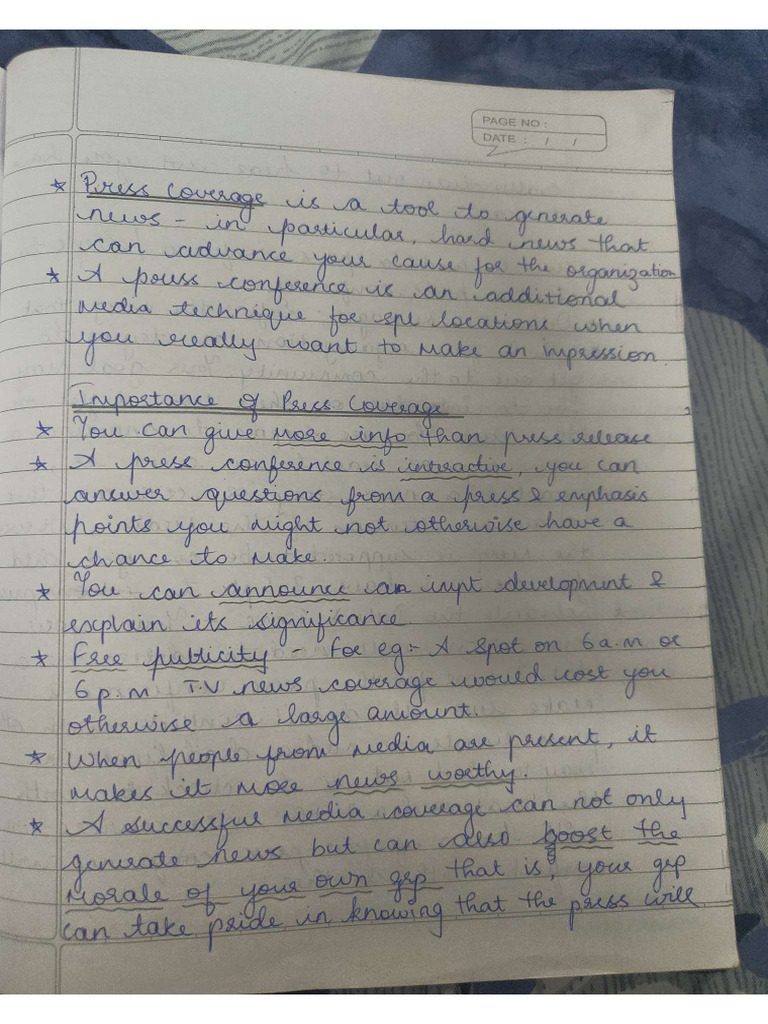 PAGE NO :
DATE : / /
* Press coverage is a tool to generate
news - in particular, hard news that
can advance your cause for the organization
* A pouss conference is an additional
media technique for spl locations when
you really want to make an impression.
Importance of Press Coverage
* You can give more info than press release
* A press conference is interactive, you can
answer questions from a press & emphasis
points you might not otherwise have a
chance to make.
* You can announce an impt development &
explain its significance.
* Free publicity - for eg:- A spot on 6 a.m or
6 p.m T.V news coverage would cost you
otherwise a large amount.
* When people from media are present, it
makes it more news worthy.
* A successful media coverage can not only
generate news but can also boost the
morale of your own grp that is, your grp
can take pride in knowing that the press will